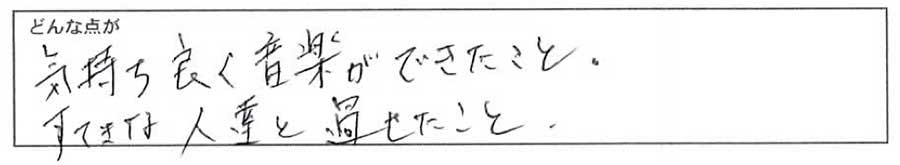 どんな点が
気持ち良く音楽ができたこと。
すてきな人達と過せたこと。